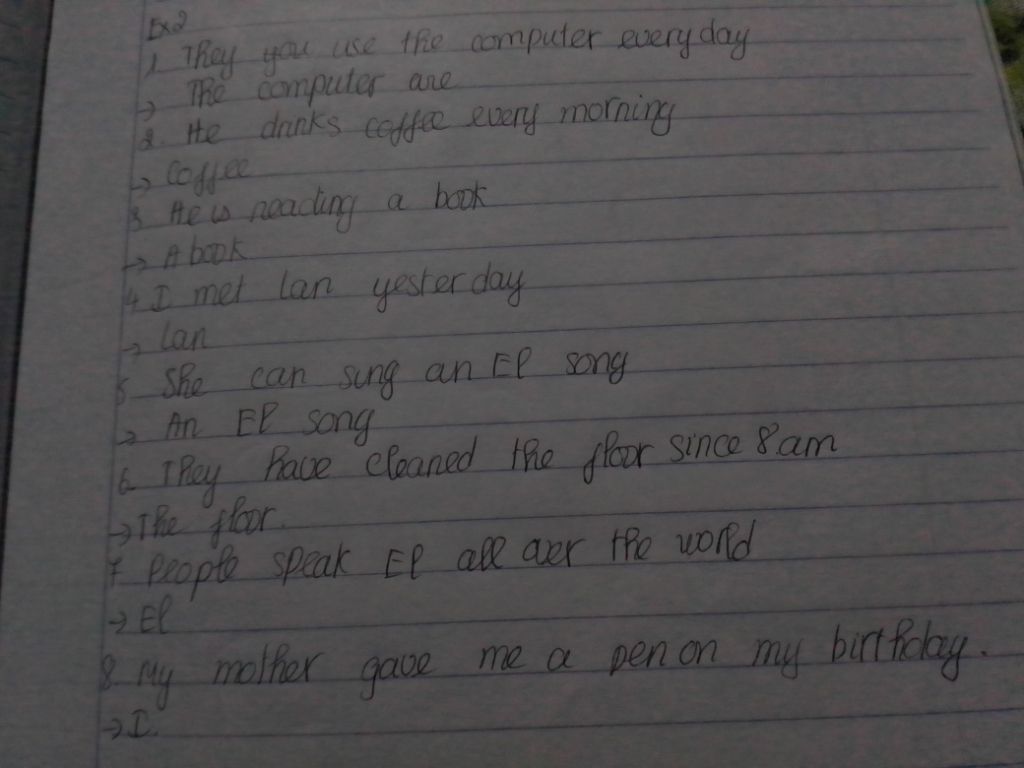 Ex2
1, They you use the computer every day
→ The computer are
2. He drinks coffee every morning
→ Coffee
3 He is reading a book
→ A book
4 I met Lan yesterday
→ Lan
5 She can sing an El song
→ An El song
6 They have cleaned the floor since 8 am
→ The floor.
7 People speak El all over the world
→ El
8 My mother gave me a pen on my birthday.
→ I.